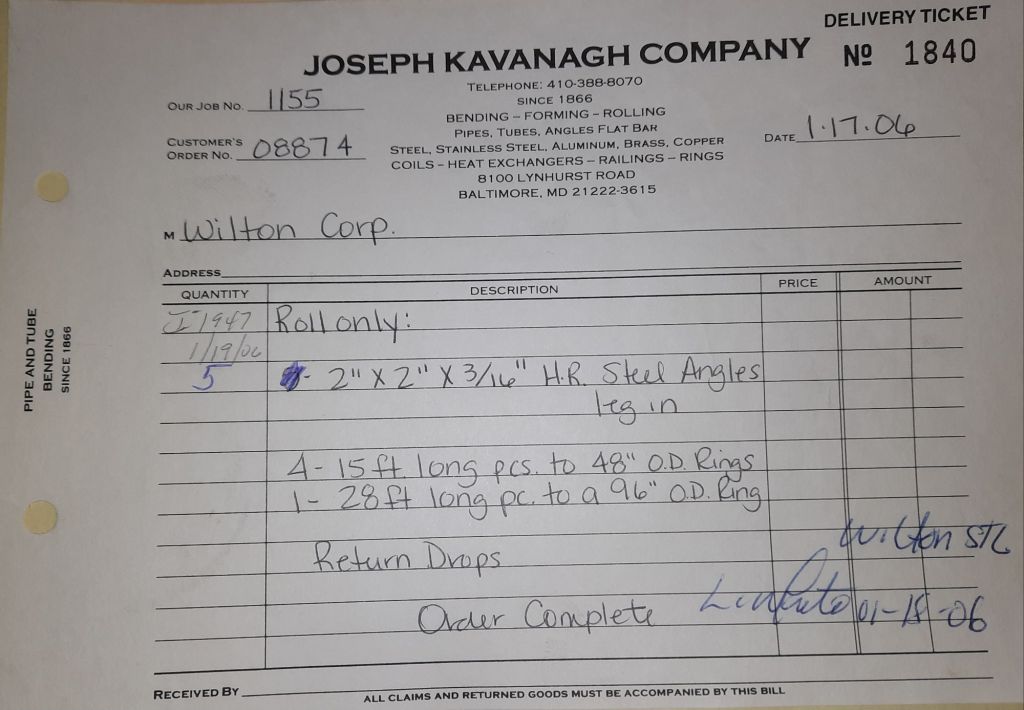 DELIVERY TICKET
JOSEPH KAVANAGH COMPANY
Nº 1840
TELEPHONE: 410-388-8070
SINCE 1866
BENDING – FORMING – ROLLING
PIPES, TUBES, ANGLES FLAT BAR
STEEL, STAINLESS STEEL, ALUMINUM, BRASS, COPPER
COILS – HEAT EXCHANGERS – RAILINGS – RINGS
8100 LYNHURST ROAD
BALTIMORE, MD 21222-3615
OUR JOB NO. 1155
CUSTOMER'S ORDER NO. 08874
DATE 1·17·06
M Wilton Corp.
ADDRESS
QUANTITY DESCRIPTION PRICE AMOUNT
I-1947 Roll only:
1/19/06
5 - 2" X 2" X 3/16" H.R. Steel Angles
leg in
4 - 15 ft long pcs. to 48" O.D. Rings
1 - 28 ft long pc. to a 96" O.D. Ring
Return Drops
Wilton STL
Order Complete
01-18-06
RECEIVED BY
ALL CLAIMS AND RETURNED GOODS MUST BE ACCOMPANIED BY THIS BILL
PIPE AND TUBE
BENDING
SINCE 1866